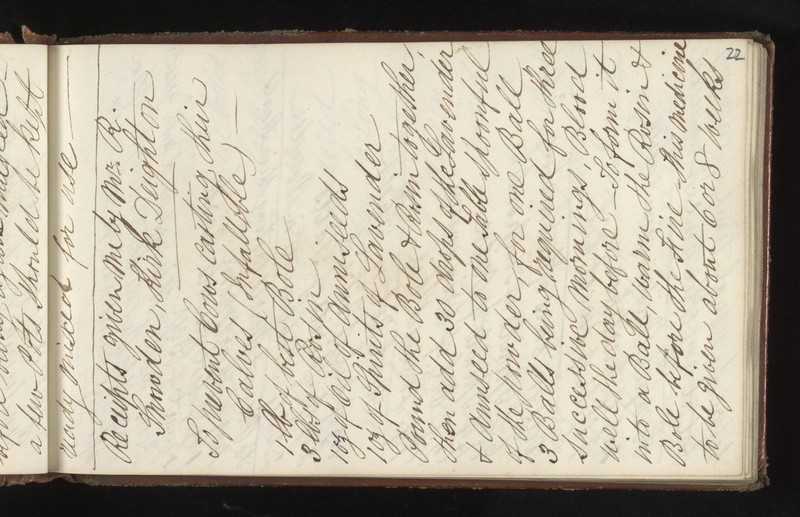 a few
Pots should be kept
ready mixed for use
22
Receipts given me by Mr. R.
Snowden, Kirk Deighton
To prevent Cows casting their
Calves (Infallible)
1 lb of best Bole
3 lbs of Rosin
1 oz of Oil of Anniseeds
1 oz of Spirits of Lavender
Pound the Bole & Rosin together,
then add 30 drops of the Lavender
& Anniseed to one table spoonful
of the powder, for one Ball
3 Balls being required for three
successive mornings. Blood
well the day before - To form it
into a Ball warm the Rosin &
Bole before the Fire - this medicine
to be given about 6 or 8 weeks